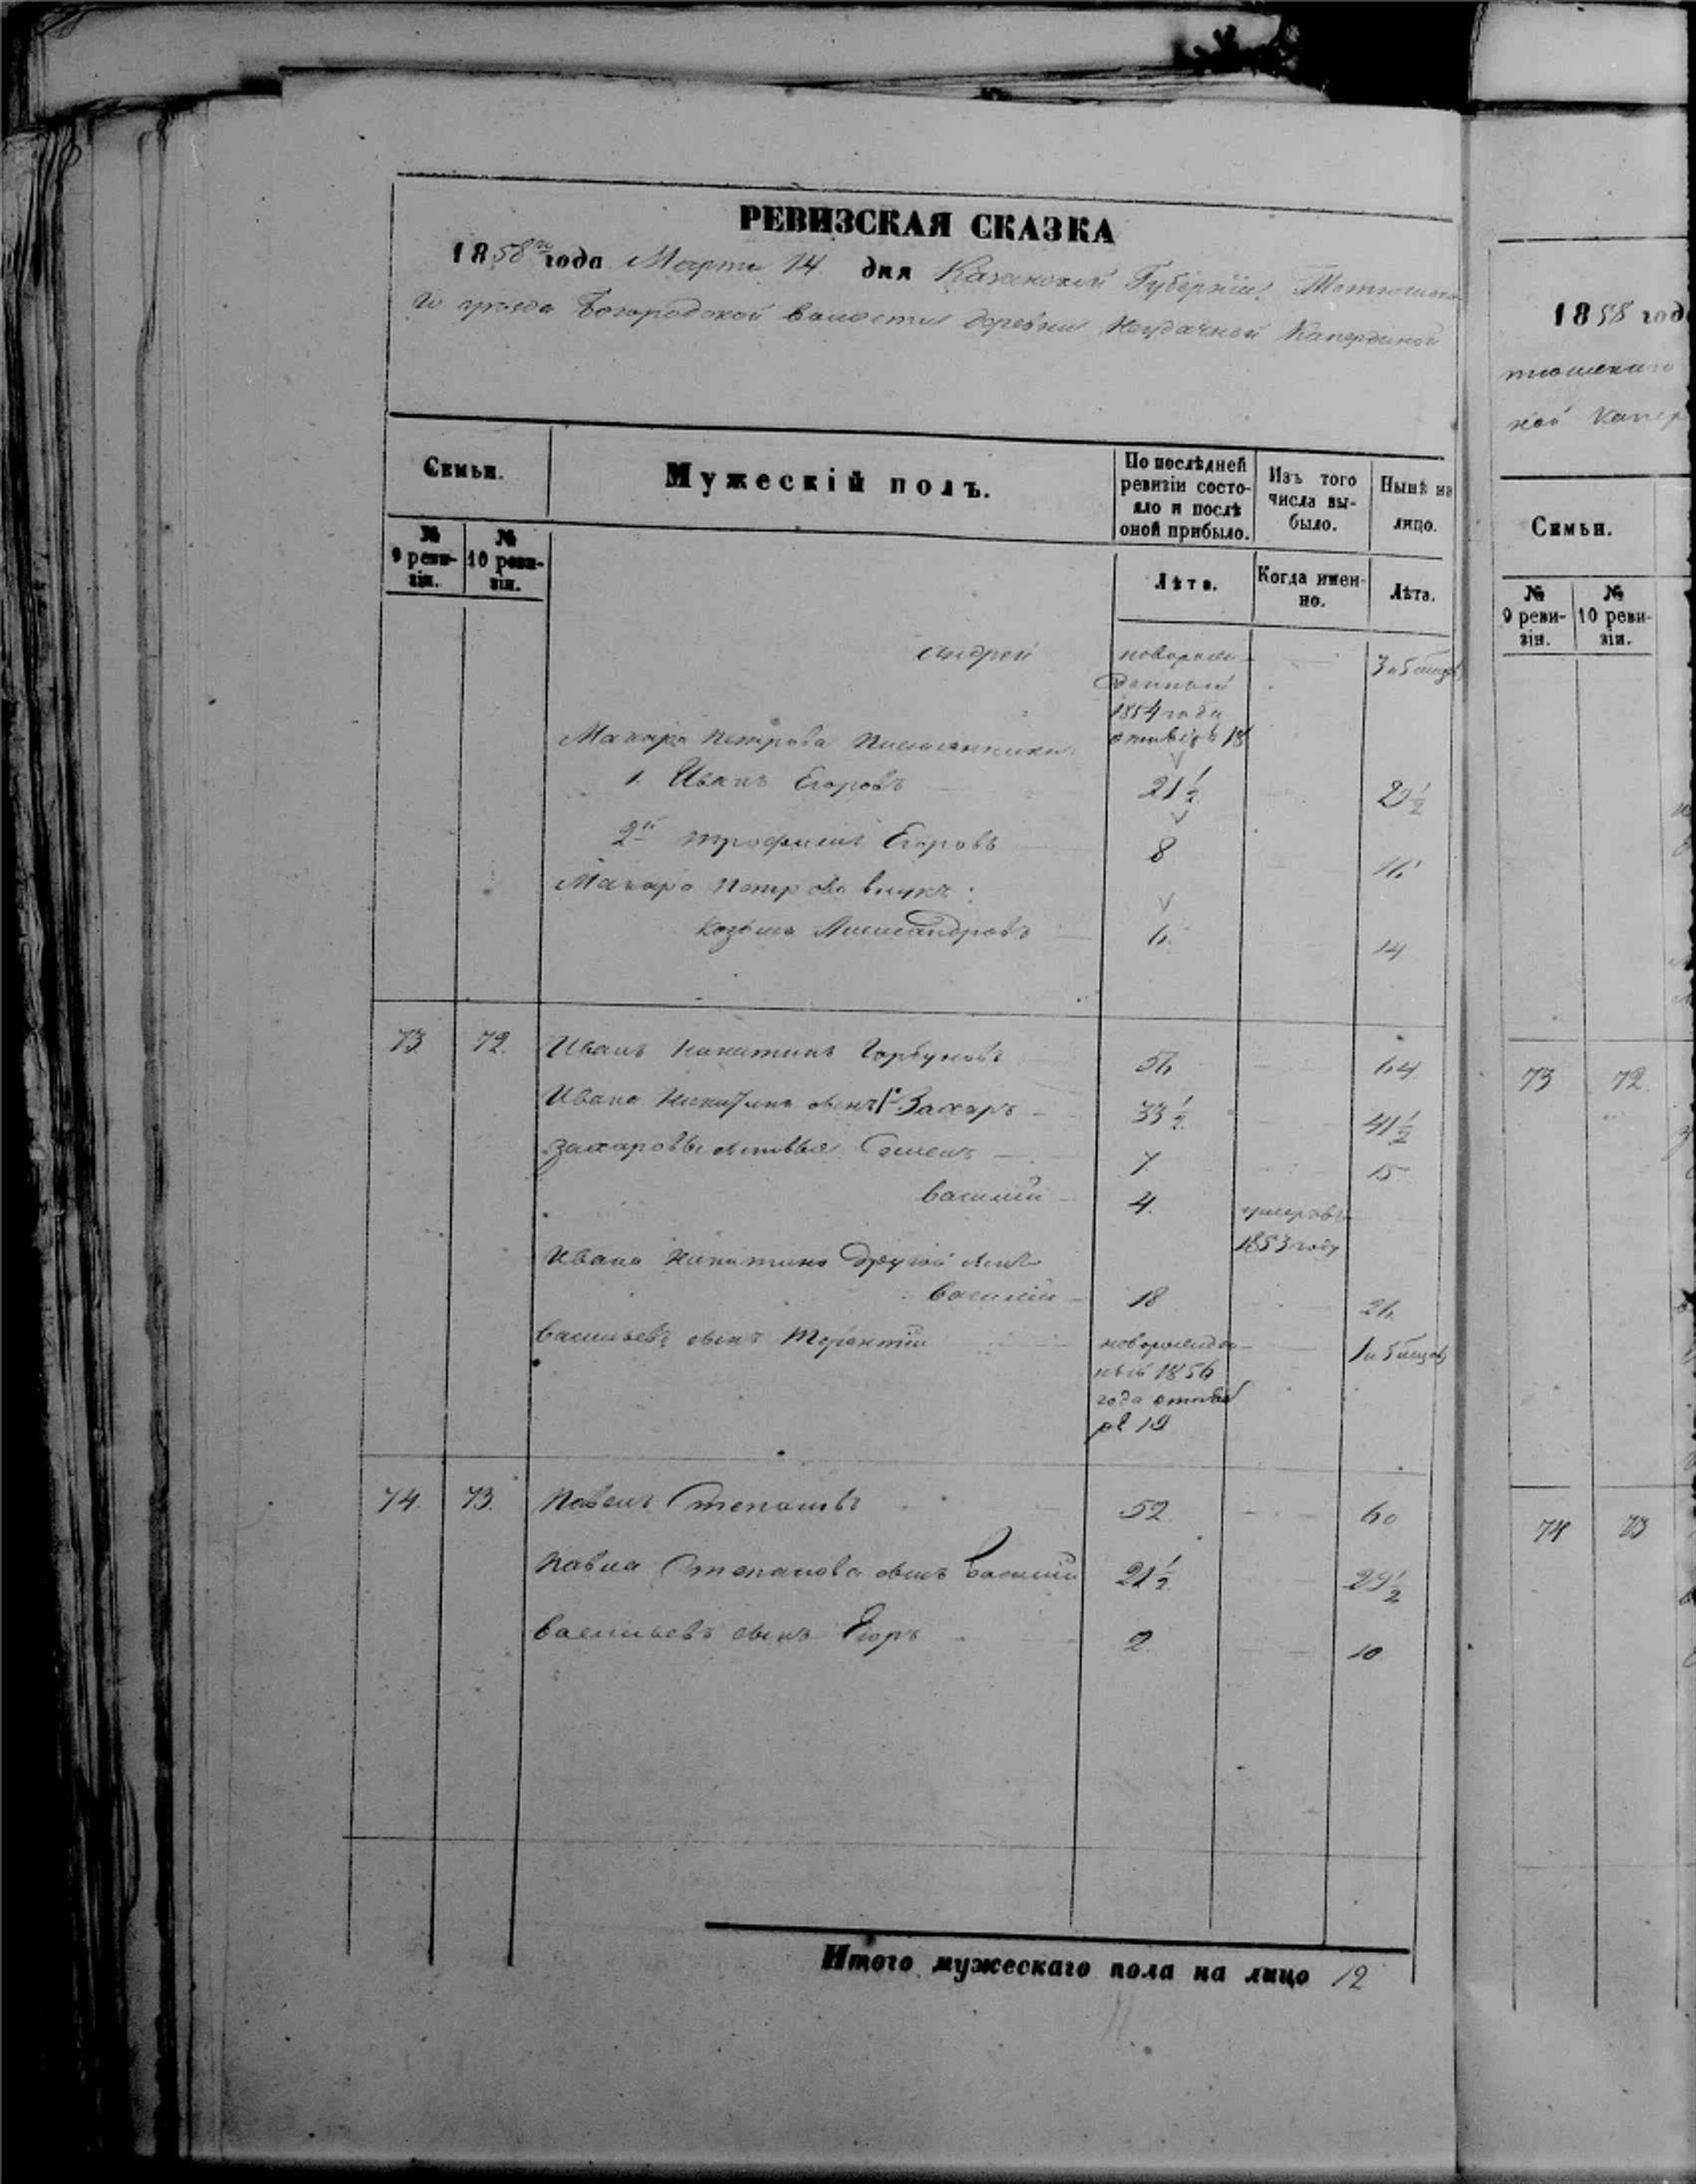 РЕВИЗСКАЯ СКАЗКА
1858го года Марта 14 дня Казанской Губерніи Тетюшска
го уѣзда Богородской волости деревни Неудачной Капердиной
Семьи.
Мужескій полъ.
По послѣдней ревизіи состо-
яло и послѣ
оной прибыло.
Изъ того
числа вы-
было.
Нынѣ на
лицо.
№
9 реви-
зіи.
№
10 реви-
зіи.
Лѣта.
Когда имен-
но.
Лѣта.
Андрей новорож- 3 и 5 мцов
денный
1854 года
октября 13
Макара Петрова племянники
1. Иванъ Егоровъ 21 1/2 29 1/2
2й Трофимъ Егоровъ 8 16
Макара Петрова внукъ:
Козьма Александровъ 6 14
73 72. Иванъ Никитинъ Горбуновъ 56 64
Ивана Никитина сынъ 1й Захаръ 33 1/2 41 1/2
Захаровы сыновья Семенъ 7 15
Василій 4. умеръ въ
1853 году
Ивана Никитина другой сынъ
Василій 18 26
Васильевъ сынъ Терентій новорожден- 1 и 5 мцов
ный 1856
года октяб
ря 19
74. 73. Павелъ Степановъ 52 60
Павла Степанова сынъ Василій 21 1/2 29 1/2
Васильевъ сынъ Егоръ 2. 10
Итого мужескаго пола на лицо 12
1858 год
тюшскаго
ной Капер
Семьи.
№
9 реви-
зіи.
№
10 реви-
зіи.
73 72
74 73